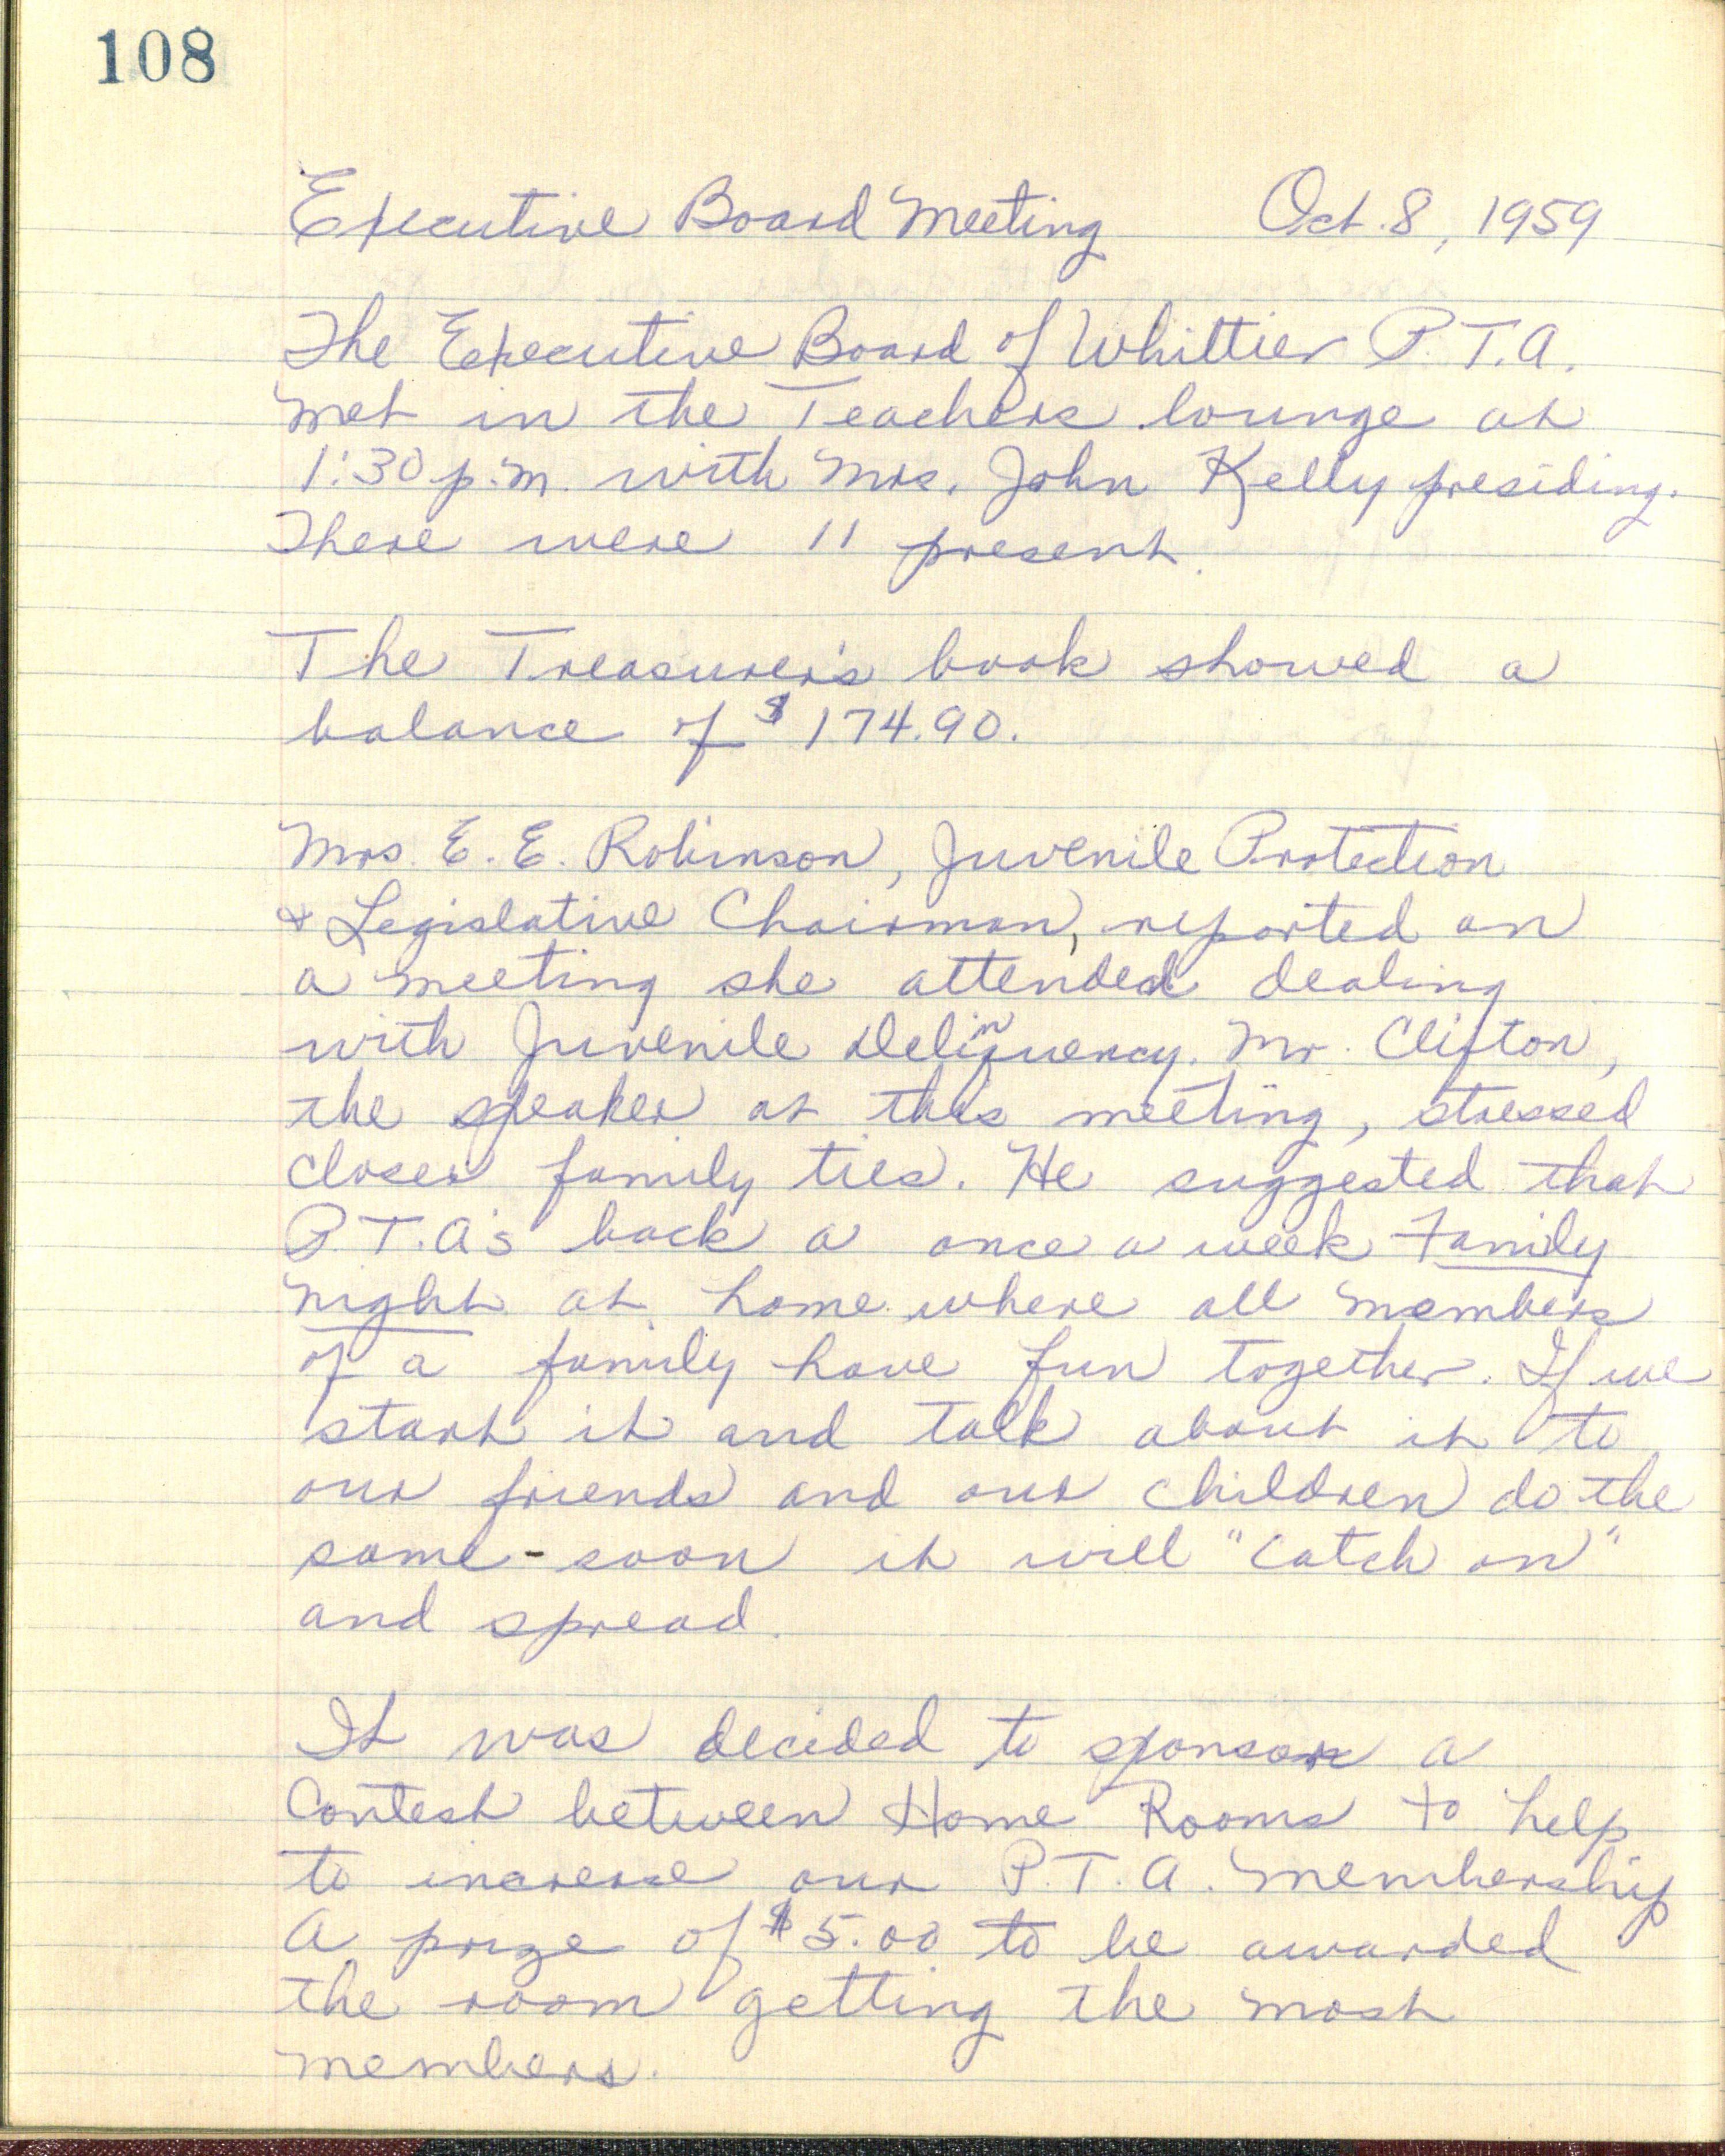 108
Executive Board Meeting Oct. 8, 1959
The Executive Board of Whittier P.T.A.
met in the Teachers lounge at
1:30 p.m. with Mrs. John Kelly presiding.
There were 11 present.
The Treasurer's book showed a
balance of $174.90.
Mrs. E. E. Robinson, Juvenile Protection
& Legislative Chairman, reported on
a meeting she attended dealing
with Juvenile Delinquency. Mr. Clifton,
the speaker at this meeting, stressed
closer family ties. He suggested that
P.T.A's back a once a week Family
Night at home where all members
of a family have fun together. If we
start it and talk about it to
our friends and our children do the
same - soon it will "catch on"
and spread.
It was decided to sponsor a
Contest between Home Rooms to help
to increase our P.T.A. membership
A prize of $5.00 to be awarded
the room getting the most
members.